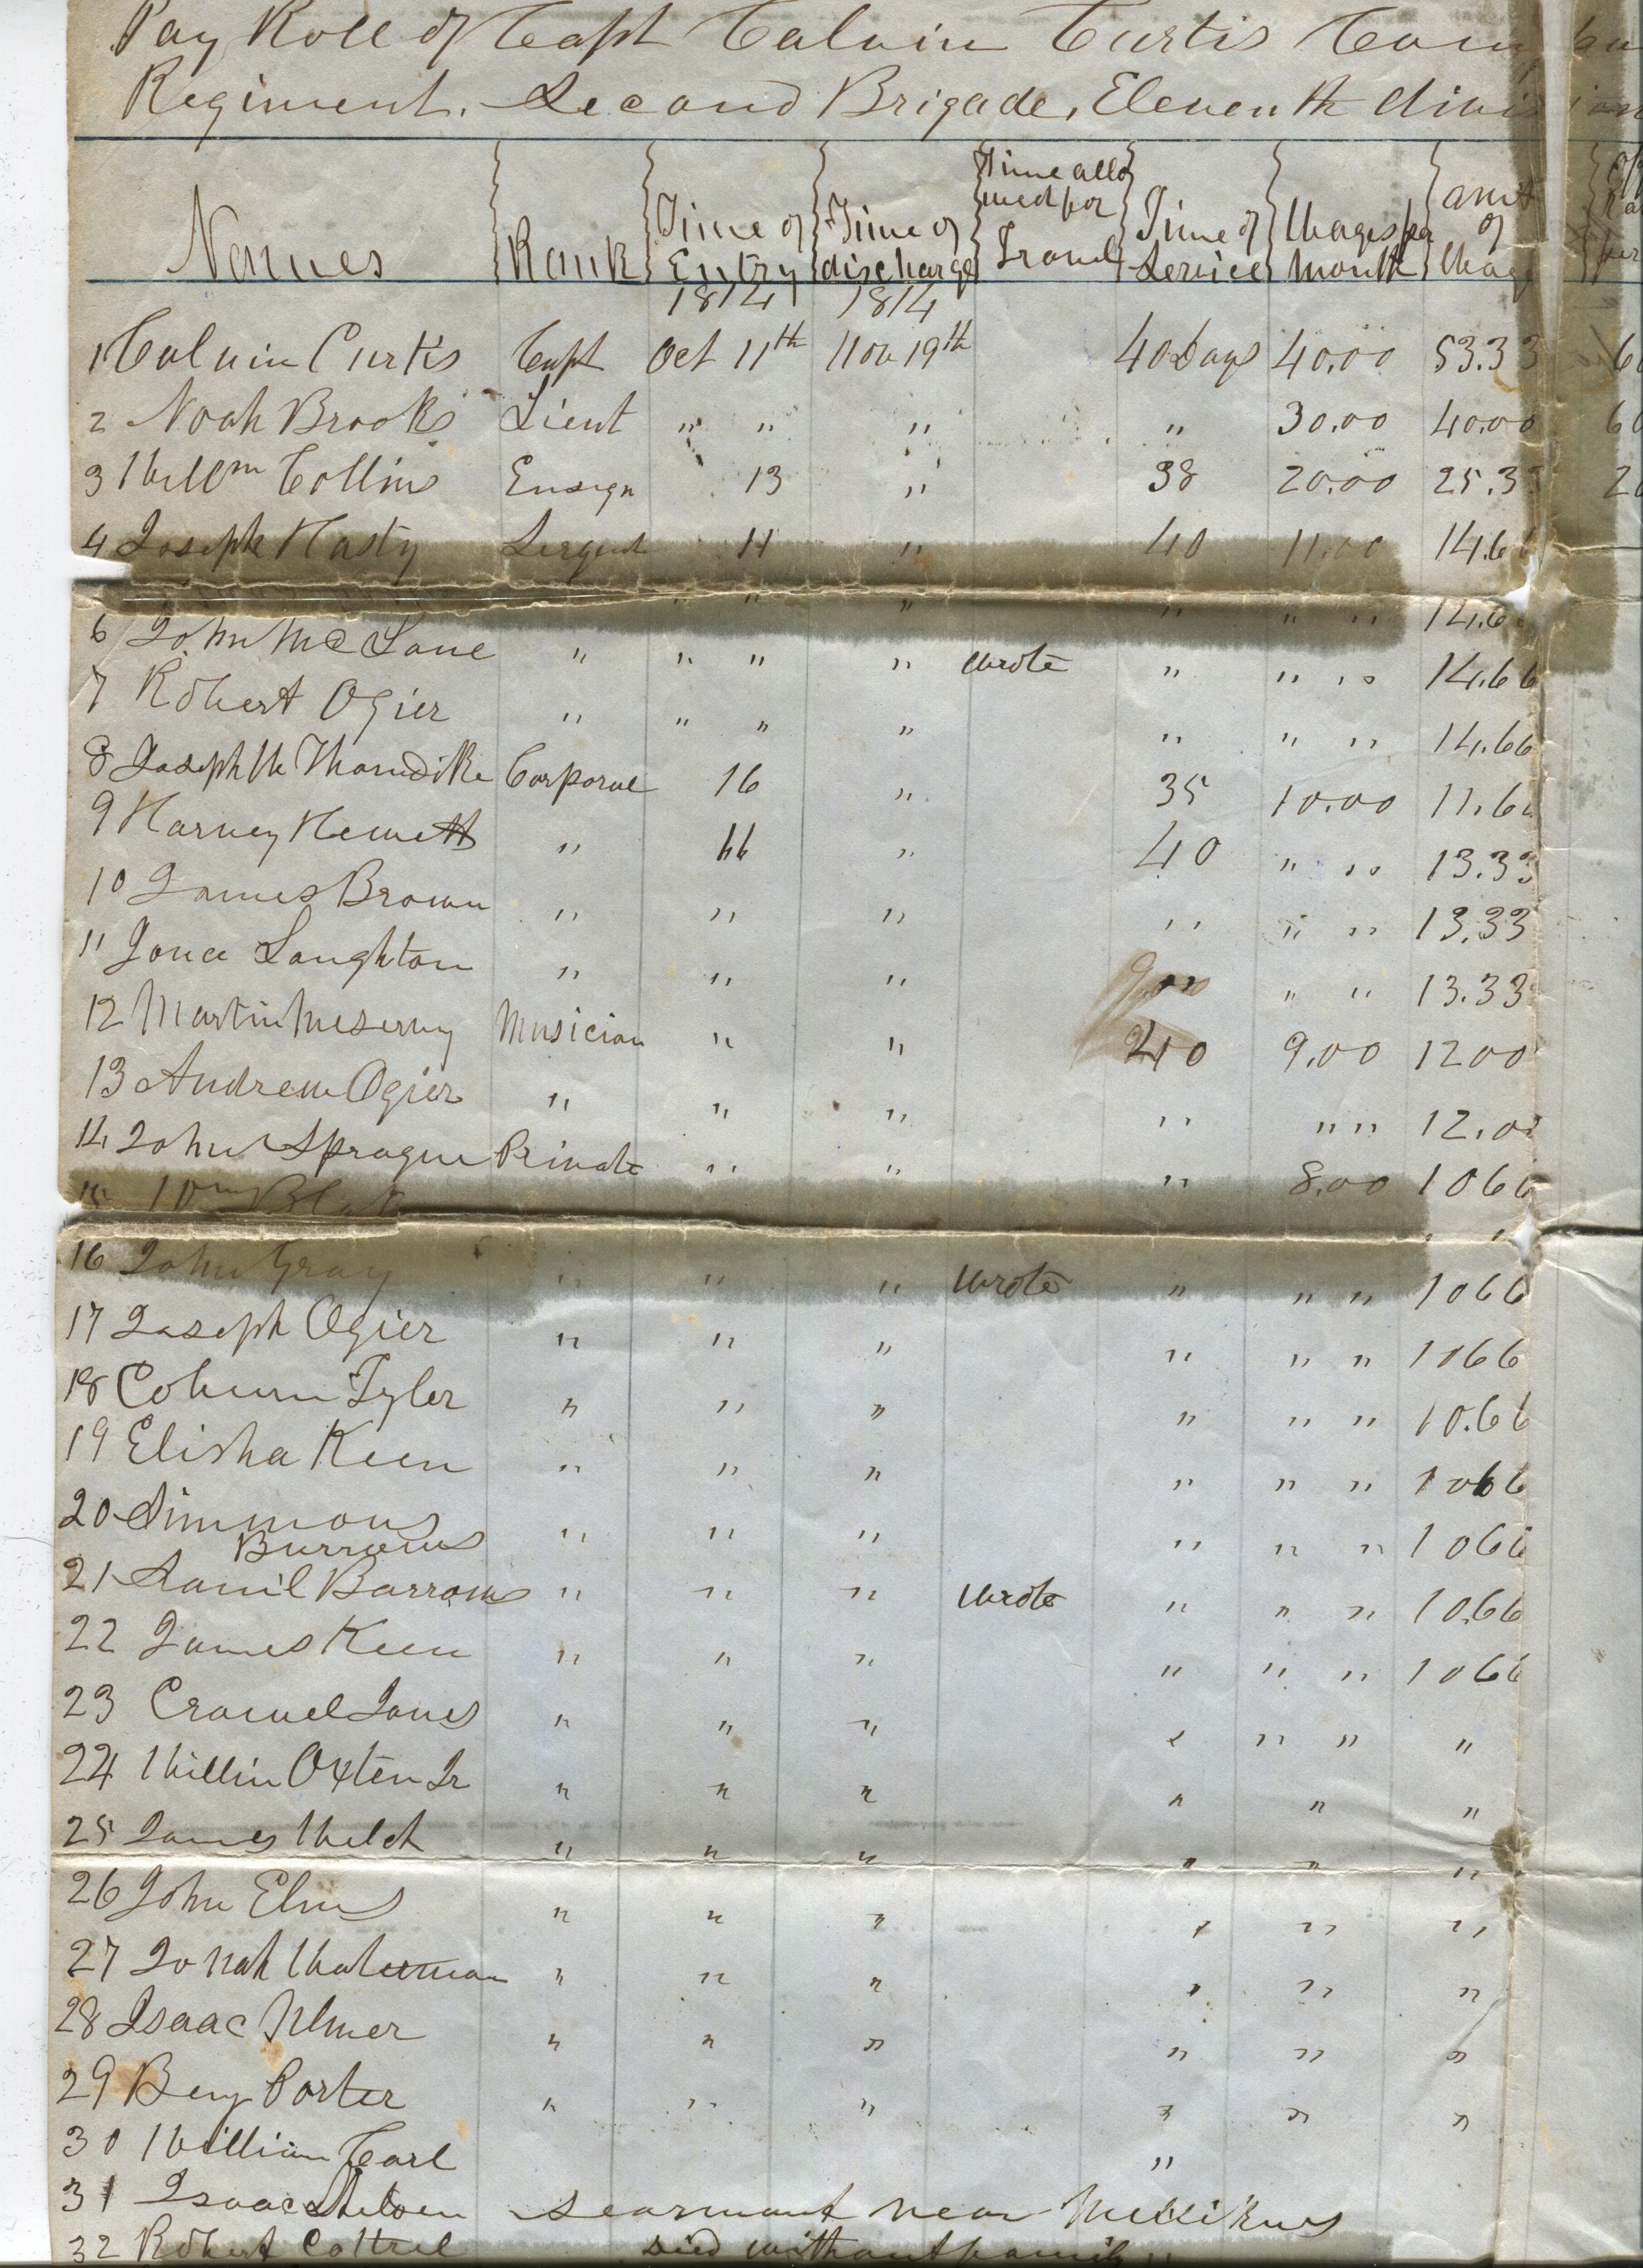 Pay Roll of Capt Calvin Curtis Com
Regiment. Second Brigade, Eleventh divis
Names Rank Time of Entry Time of discharge Time allowed for Travel Time of Service Wages per Month amt of Wag
1814 1814
1 Calvin Curtis Capt Oct 11th Nov 19th 40 Days 40.00 53.33
2 Noah Brooks Lieut " " " " 30.00 40.00 60
3 Wm Collins Ensign 13 " 38 20.00 25.33 20
4 Joseph Hasty Sergent 11 " 40 11.00 14.66
" " " " " " 14.6
6 John Mc Lane " " " " wrote " " " 14.66
7 Robert Ogier " " " " " " " 14.66
8 Joseph W Thorndike Corporal 16 " 35 10.00 11.66
9 Harvey Hewett " 11 " 40 " " 13.33
10 James Brown " " " " " " 13.33
11 Laughton " " " " " 13.33
12 Martin Meservy Musician " " 40 9.00 1200
13 Andrew Ogier " " " " " " 12.00
14 John Sprague Private " " " 8.00 1066
15 Wm Blak
16 John Gray " " " wrote " " " 1066
17 Joseph Ogier " " " " " " 1066
18 Coburn Tyler " " " " " " 10.66
19 Elisha Keen " " " " " " 1066
20 Simmons " " " " " " 1066
Burrows
21 Saml Barrows " " " wrote " " " 10.66
22 James Keen " " " " " " 1066
23 Cromwel Jones " " " " " " "
24 Willim Oxten Jr " " " " " "
25 James Welch " " " " " "
26 John Elms " " " " " "
27 Jonah Waterman " " " " " "
28 Isaac Ulmer " " " " " "
29 Benj Porter " " " " " "
30 William Carl "
31 Isaac searmant near Millikens
32 Robert Cottrel died without family